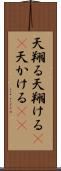 天翔る天翔ける
天かける